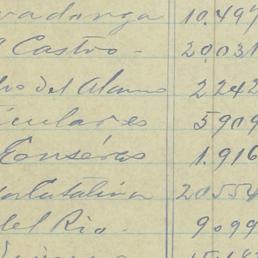 vadonga 10.497
Castro - 20,031
del Alamo 2242
iculares 5909
Conséras 1.916
Catalina 20554
del Rio. 9099